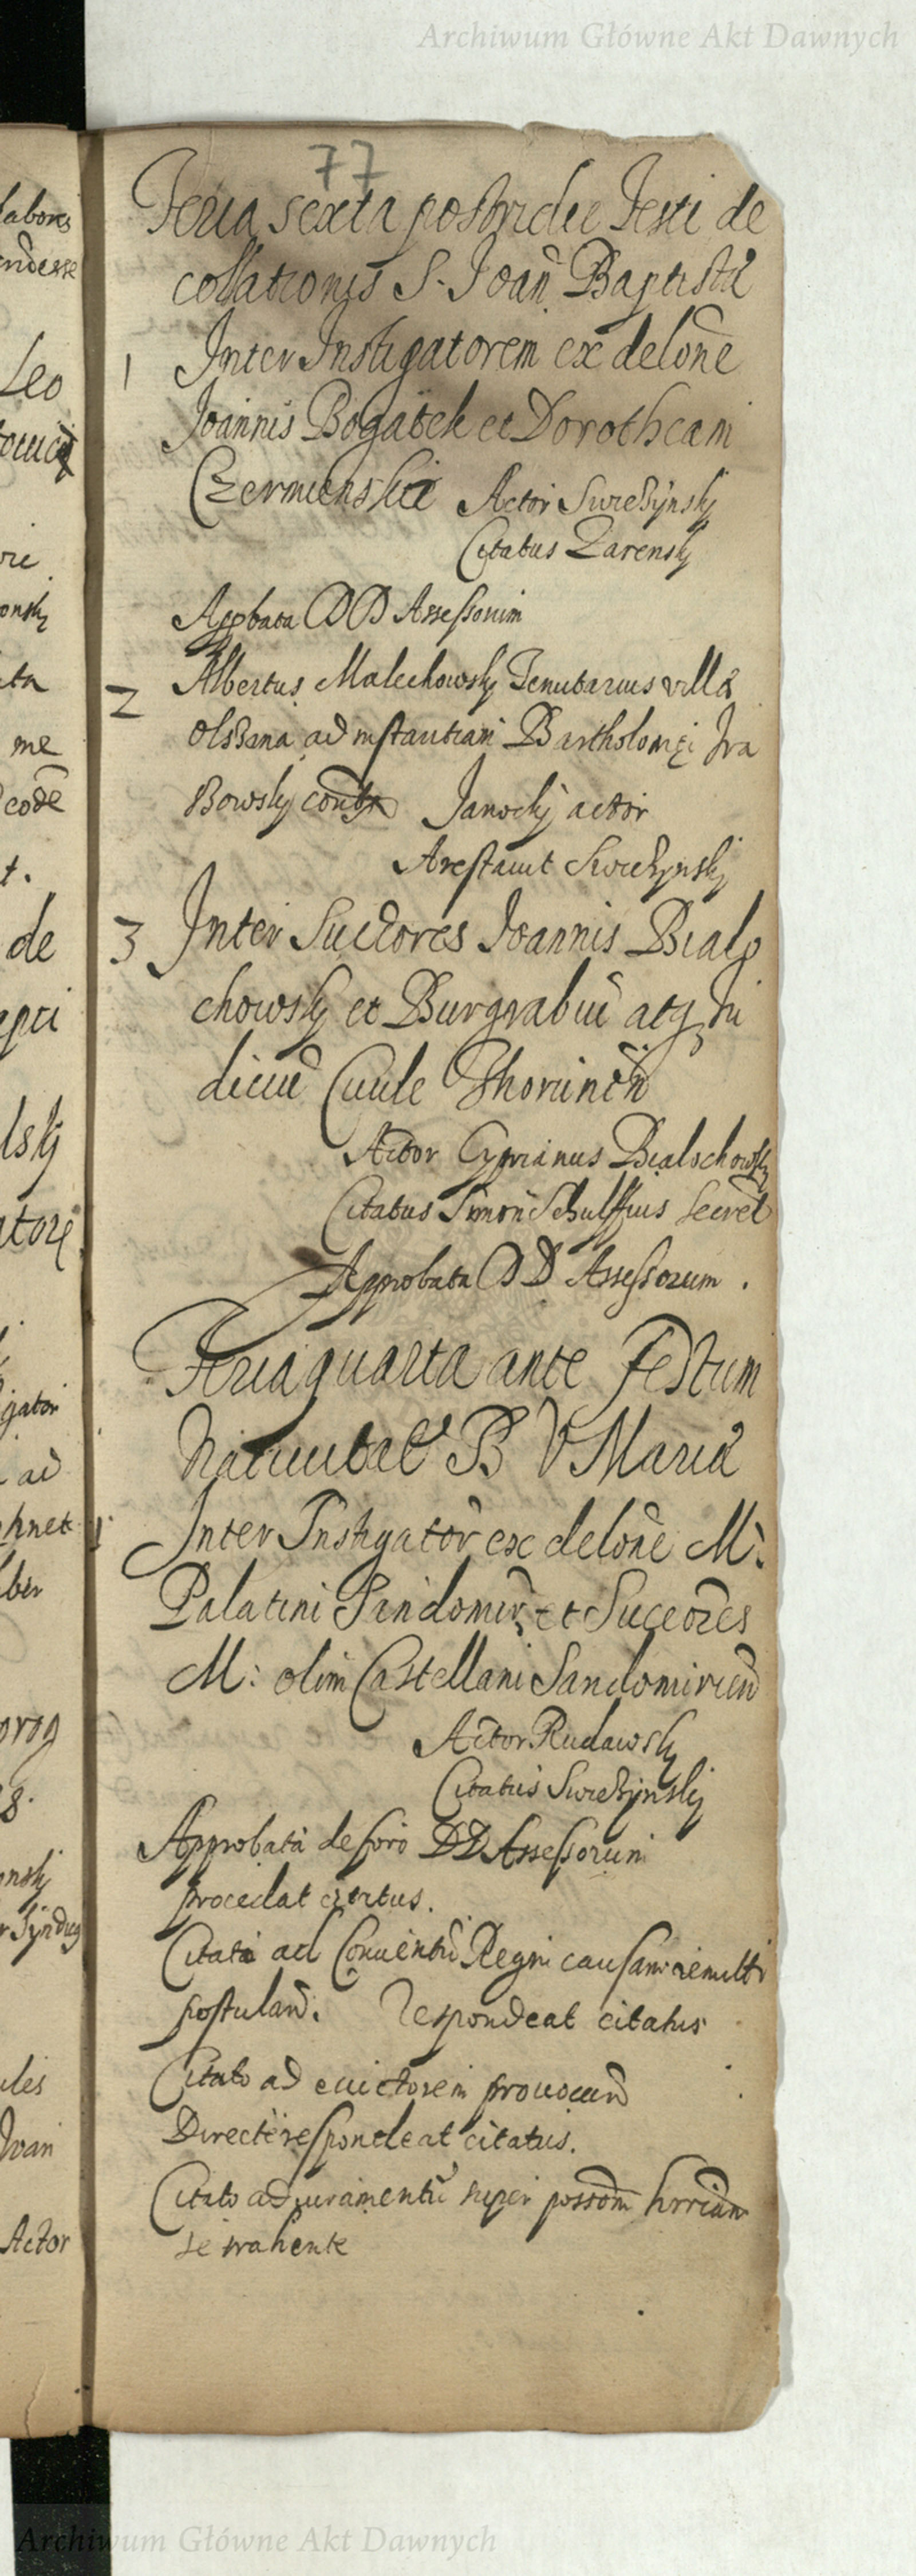 Archiwum Główne Akt Dawnych
77
Feria sexta postridie Festi de
collationis S. Joan̄ Baptistæ
1 Inter Instigatorem ex delōne
Joannis Bogatek et Dorotheam
Czermienskie Actor Swieżÿnskÿ
Citatus Zarenskÿ
Appbata DD Assessorum
2 Albertus Malechowskÿ Tenutarius villæ
Olszana ad instantiam Bartholomęi Gra
Bowskÿ contra Janockÿ actor
Arestavit Swieżynskÿ
3 Inter Suctores Joannis Bialo
chowskÿ et Burgrabiū atq Ju
diciū Civile Thorunēn
Actor Cyprianus Bialochowskÿ
Citatus Simon Schultzius Secret
Approbata DD Assessorum .
Feria quarta ante Festum
Nativitat B V Mariæ
1 Inter Instigator ex delōne M:
Palatini Sandomir et Succōres
M: olim Castellani Sandomirien
Actor Rudawskÿ
Citatus Swieżynskÿ
Approbata de foro DD Assessorum
procedat citatus.
Citati ad Conventū Regni causam remitti
postulan. Respondeat citatus
Citato ad evictorem provocan
Directe respondeat citatus.
Citato ad juramentū super possōm
se trahente
Archiwum Główne Akt Dawnych